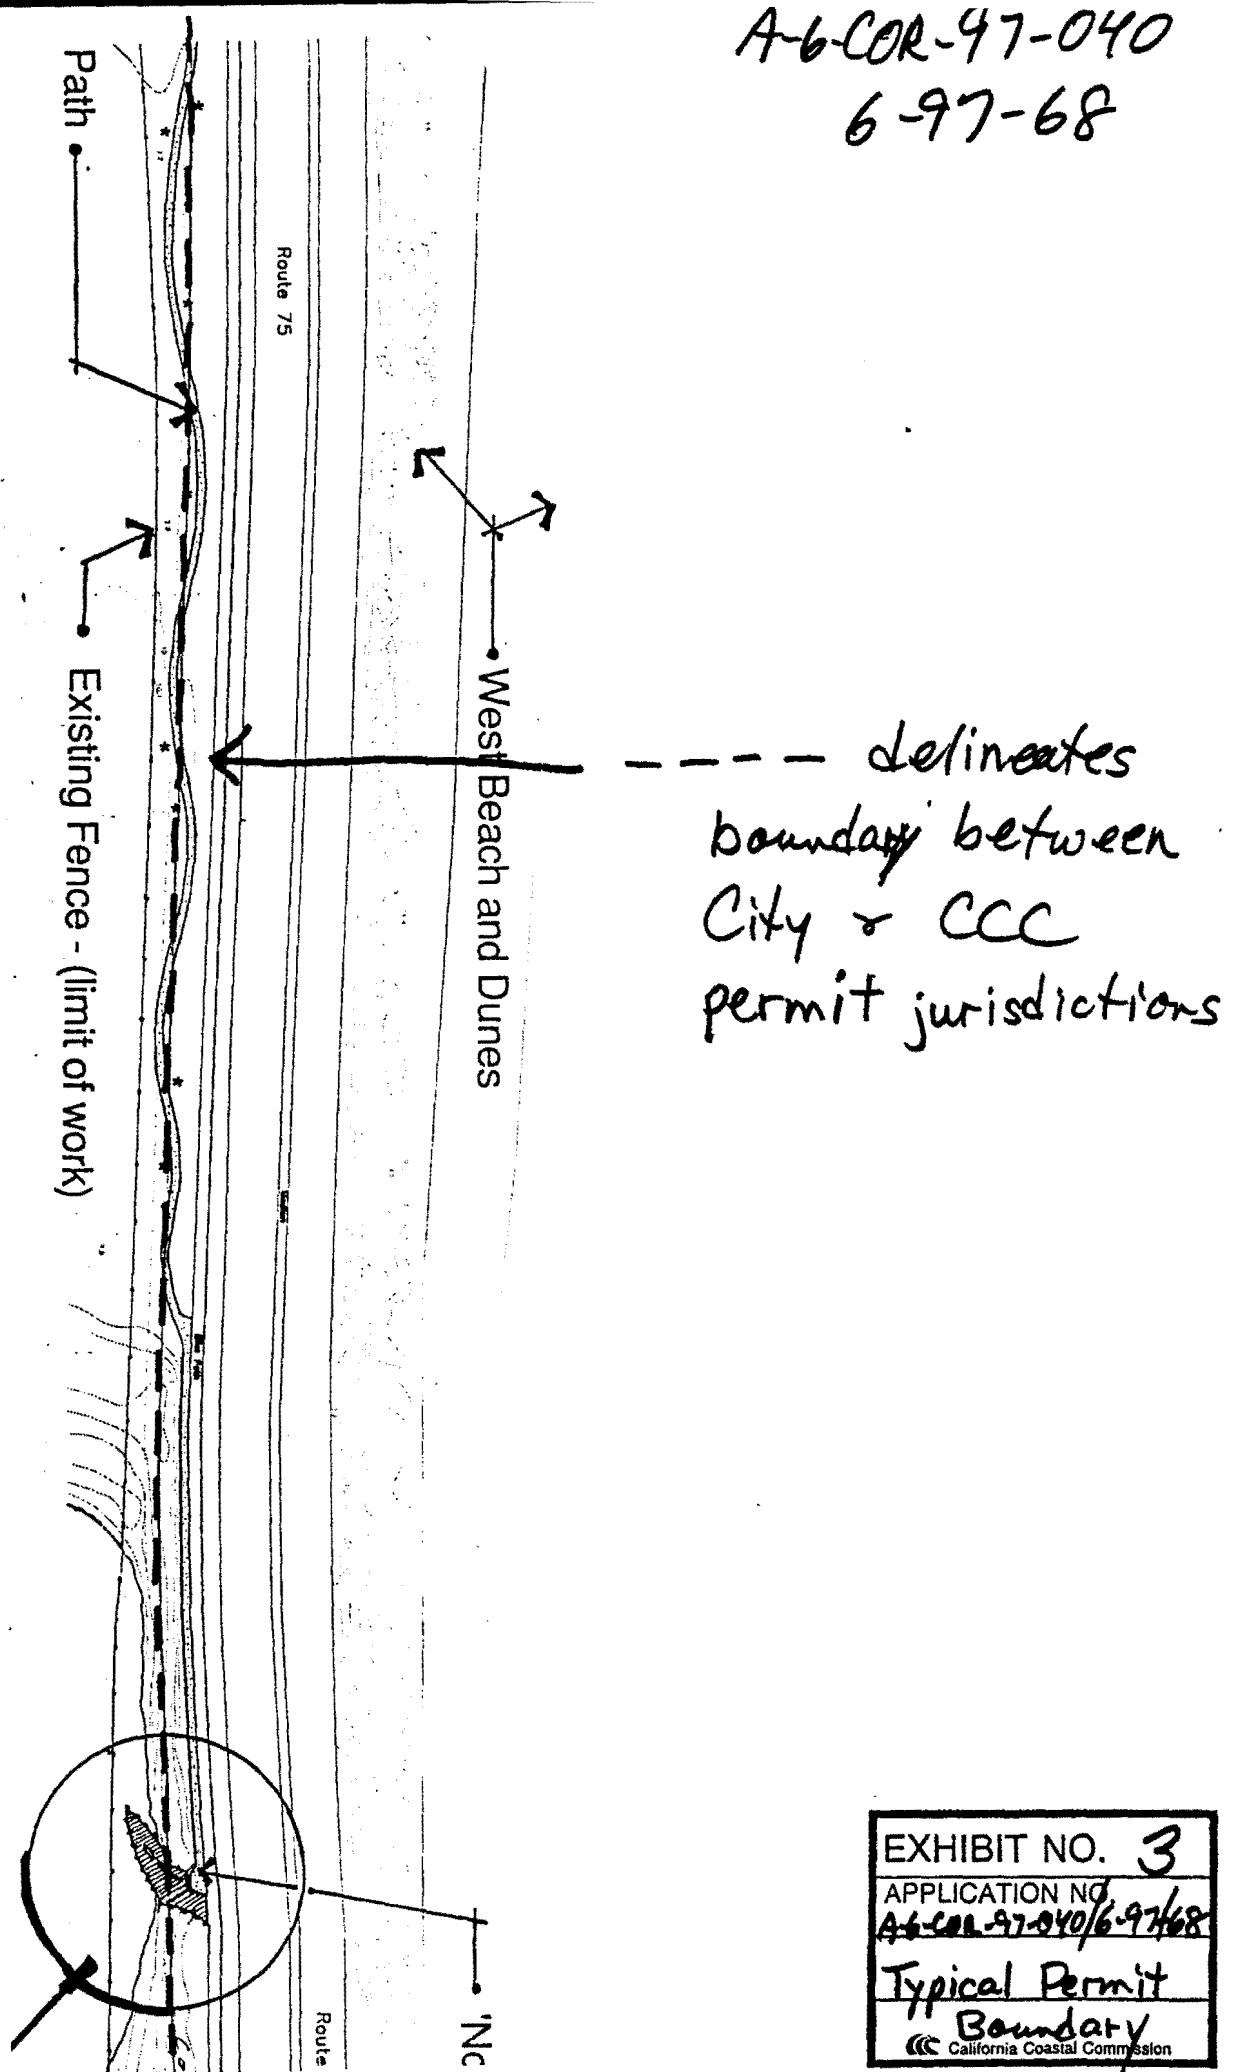 A-6-COR-97-040
6-97-68
Path
Route 75
West Beach and Dunes
Existing Fence - (limit of work)
---- delineates
boundary between
City & CCC
permit jurisdictions
Route
'No
EXHIBIT NO. 3
APPLICATION NO.
A-6-COR-97-040/6-97-68
Typical Permit
Boundary
California Coastal Commission